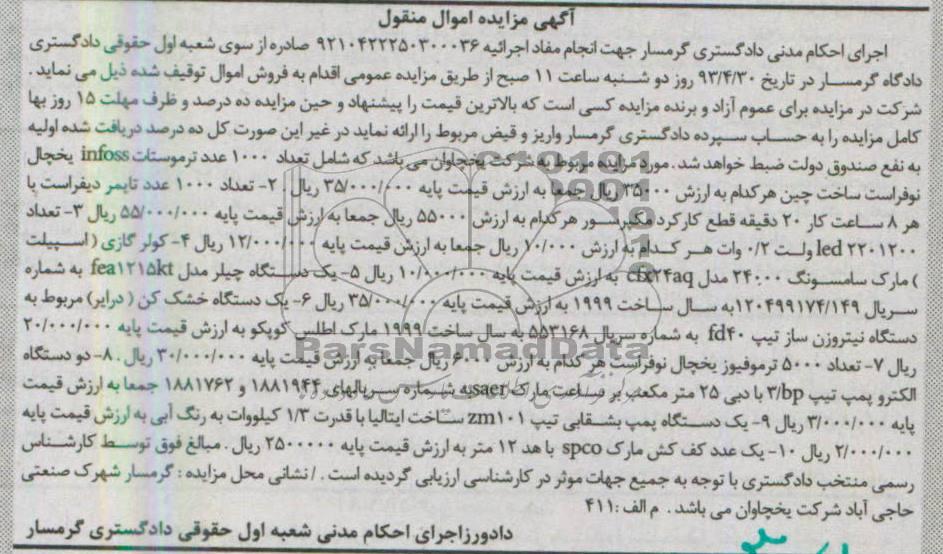 آگهی مزایده اموال منقول
اجرای احکام مدنی دادگستری گرمسار جهت انجام مفاد اجرائیه ۹۲۱۰۴۲۲۲۵۰۳۰۰۰۳۶ صادره از سوی شعبه اول حقوقی دادگستری
دادگاه گرمسار در تاریخ ۹۳/۴/۳۰ روز دو شنبه ساعت ۱۱ صبح از طریق مزایده عمومی اقدام به فروش اموال توقیف شده ذیل می نماید .
شرکت در مزایده برای عموم آزاد و برنده مزایده کسی است که بالاترین قیمت را پیشنهاد و حین مزایده ده درصد و ظرف مهلت ۱۵ روز بها
کامل مزایده را به حساب سپرده دادگستری گرمسار واریز و قبض مربوط را ارائه نماید در غیر این صورت کل ده درصد دریافت شده اولیه
به نفع صندوق دولت ضبط خواهد شد . مورد مزایده مربوط به شرکت یخچاوان می باشد که شامل تعداد ۱۰۰۰ عدد ترموستات infoss یخچال
نوفراست ساخت چین هر کدام به ارزش ۳۵۰۰۰ ریال جمعا به ارزش قیمت پایه ۳۵/۰۰۰/۰۰۰ ریال . ۲- تعداد ۱۰۰۰ عدد تایمر دیفراست با
هر ۸ ساعت کار ۲۰ دقیقه قطع کارکرد مکپرسور هر کدام به ارزش ۵۵۰۰۰ ریال جمعا به ارزش قیمت پایه ۵۵/۰۰۰/۰۰۰ ریال ۳- تعداد
۱۲۰۰ led ۲۲۰ ولت ۰/۲ وات هر کدام به ارزش ۱۰/۰۰۰ ریال جمعا به ارزش قیمت پایه ۱۲/۰۰۰/۰۰۰ ریال ۴- کولر گازی ( اسپیلت
) مارک سامسونگ ۲۴۰۰۰ مدل cfx۲۴aq به ارزش قیمت پایه ۱۰/۰۰۰/۰۰۰ ریال ۵- یک دستگاه چیلر مدل fea۱۲۱۵kt به شماره
سریال ۱۲۰۴۹۹۱۷۴/۱۴۹ به سال ساخت ۱۹۹۹ به ارزش قیمت پایه ۳۵/۰۰۰/۰۰۰ ریال ۶- یک دستگاه خشک کن ( درایر) مربوط به
دستگاه نیتروزن ساز تیپ fd۴۰ به شماره سریال ۵۵۳۱۶۸ به سال ساخت ۱۹۹۹ مارک اطلس کوپکو به ارزش قیمت پایه ۲۰/۰۰۰/۰۰۰
ریال ۷- تعداد ۵۰۰۰ ترموفیوز یخچال نوفراست هر کدام به ارزش ۶۰۰۰ ریال جمعا به ارزش قیمت پایه ۳۰/۰۰۰/۰۰۰ ریال . ۸- دو دستگاه
الکترو پمپ تیپ ۳/bp با دبی ۲۵ متر مکعب بر ساعت مارک saer به شماره سریالهای ۱۸۸۱۹۴۴ و ۱۸۸۱۷۶۲ جمعا به ارزش قیمت
پایه ۳/۰۰۰/۰۰۰ ریال ۹- یک دستگاه پمپ بشقابی تیپ zm۱۰۱ ساخت ایتالیا با قدرت ۱/۳ کیلووات به رنگ آبی به ارزش قیمت پایه
۲/۰۰۰/۰۰۰ ریال ۱۰- یک عدد کف کش مارک spco با هد ۱۲ متر به ارزش قیمت پایه ۲۵۰۰۰۰۰ ریال . مبالغ فوق توسط کارشناس
رسمی منتخب دادگستری با توجه به جمیع جهات موثر در کارشناسی ارزیابی گردیده است . / نشانی محل مزایده : گرمسار شهرک صنعتی
حاجی آباد شرکت یخچاوان می باشد . م الف : ۴۱۱
دادورزاجرای احکام مدنی شعبه اول حقوقی دادگستری گرمسار
ParsNamadData